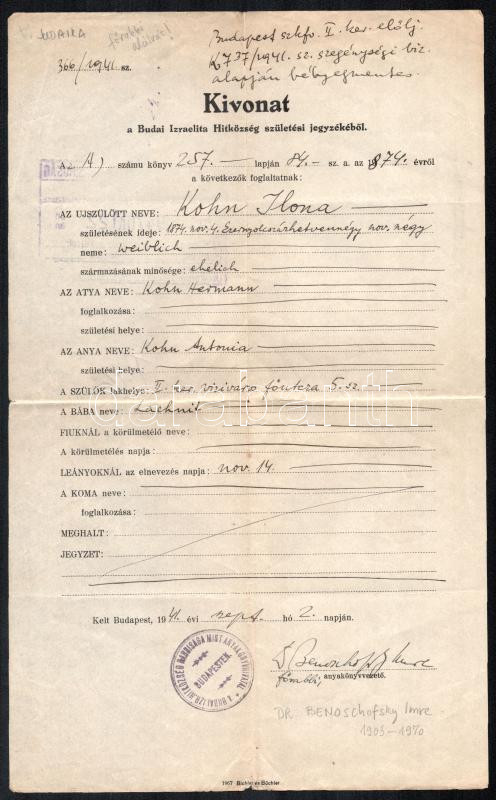 JUDAIKA
főrabbi aláírás!
366/1941 sz.
Budapest szkfv. II. ker. elölj.
737/1941. sz. szegénységi biz.
alapján bélyegmentes.
Kivonat
a Budai Izraelita Hitközség születési jegyzékéből.
Az A) számu könyv 257.— lapján 84.— sz. a. az 1874. évről
a következők foglaltatnak:
AZ UJSZÜLÖTT NEVE: Kohn Ilona
születésének ideje: 1874. nov. 4. Ezernyolcszázhetvennégy nov. négy
neme: weiblich
származásának minősége: ehelich
AZ ATYA NEVE: Kohn Hermann
foglalkozása:
születési helye:
AZ ANYA NEVE: Kohn Antonia
születési helye:
A SZÜLŐK lakhelye: II. ker. viziváros főutcza 5. sz.
A BÁBA neve: Lachnit
FIUKNÁL a körülmetélő neve:
A körülmetélés napja:
LEÁNYOKNÁL az elnevezés napja: nov. 14.
A KOMA neve:
foglalkozása:
MEGHALT:
JEGYZET:
darabanth
Kelt Budapest, 1941. évi szept. hó 2. napján.
A BUDAI IZR. HITKÖZSÉG RABBISÁGA MINT ANYAKÖNYVI HIVATAL
BUDAPESTEN.
Dr Benoschofsky Imre
főrabbi, anyakönyvvezető.
DR. BENOSCHOFSKY Imre
1903–1970
1967 Bichler és Büchler